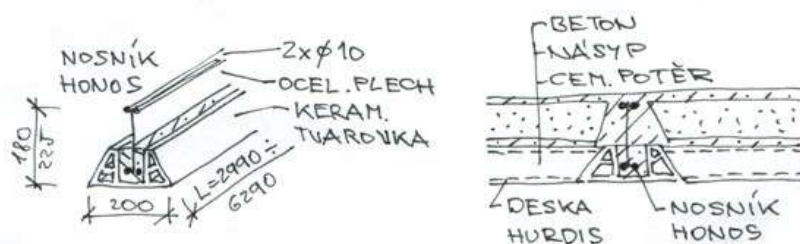 NOSNÍK
HONOS
2xϕ10
OCEL. PLECH
KERAM.
TVAROVKA
180
225
200
L=2990 ÷
6290
BETON
NÁSYP
CEM. POTĚR
DESKA
HURDIS
NOSNÍK
HONOS